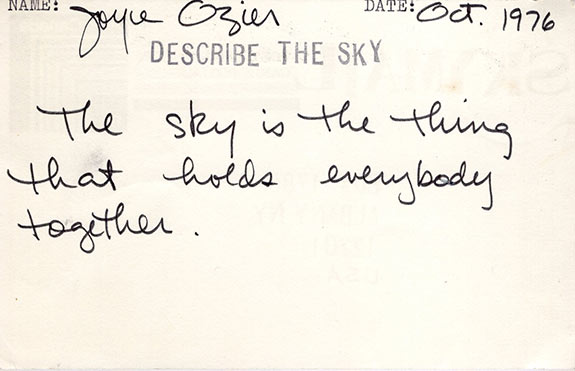 NAME: Joyce Ozier DATE: Oct. 1976
DESCRIBE THE SKY
The sky is the thing
that holds everybody
together.